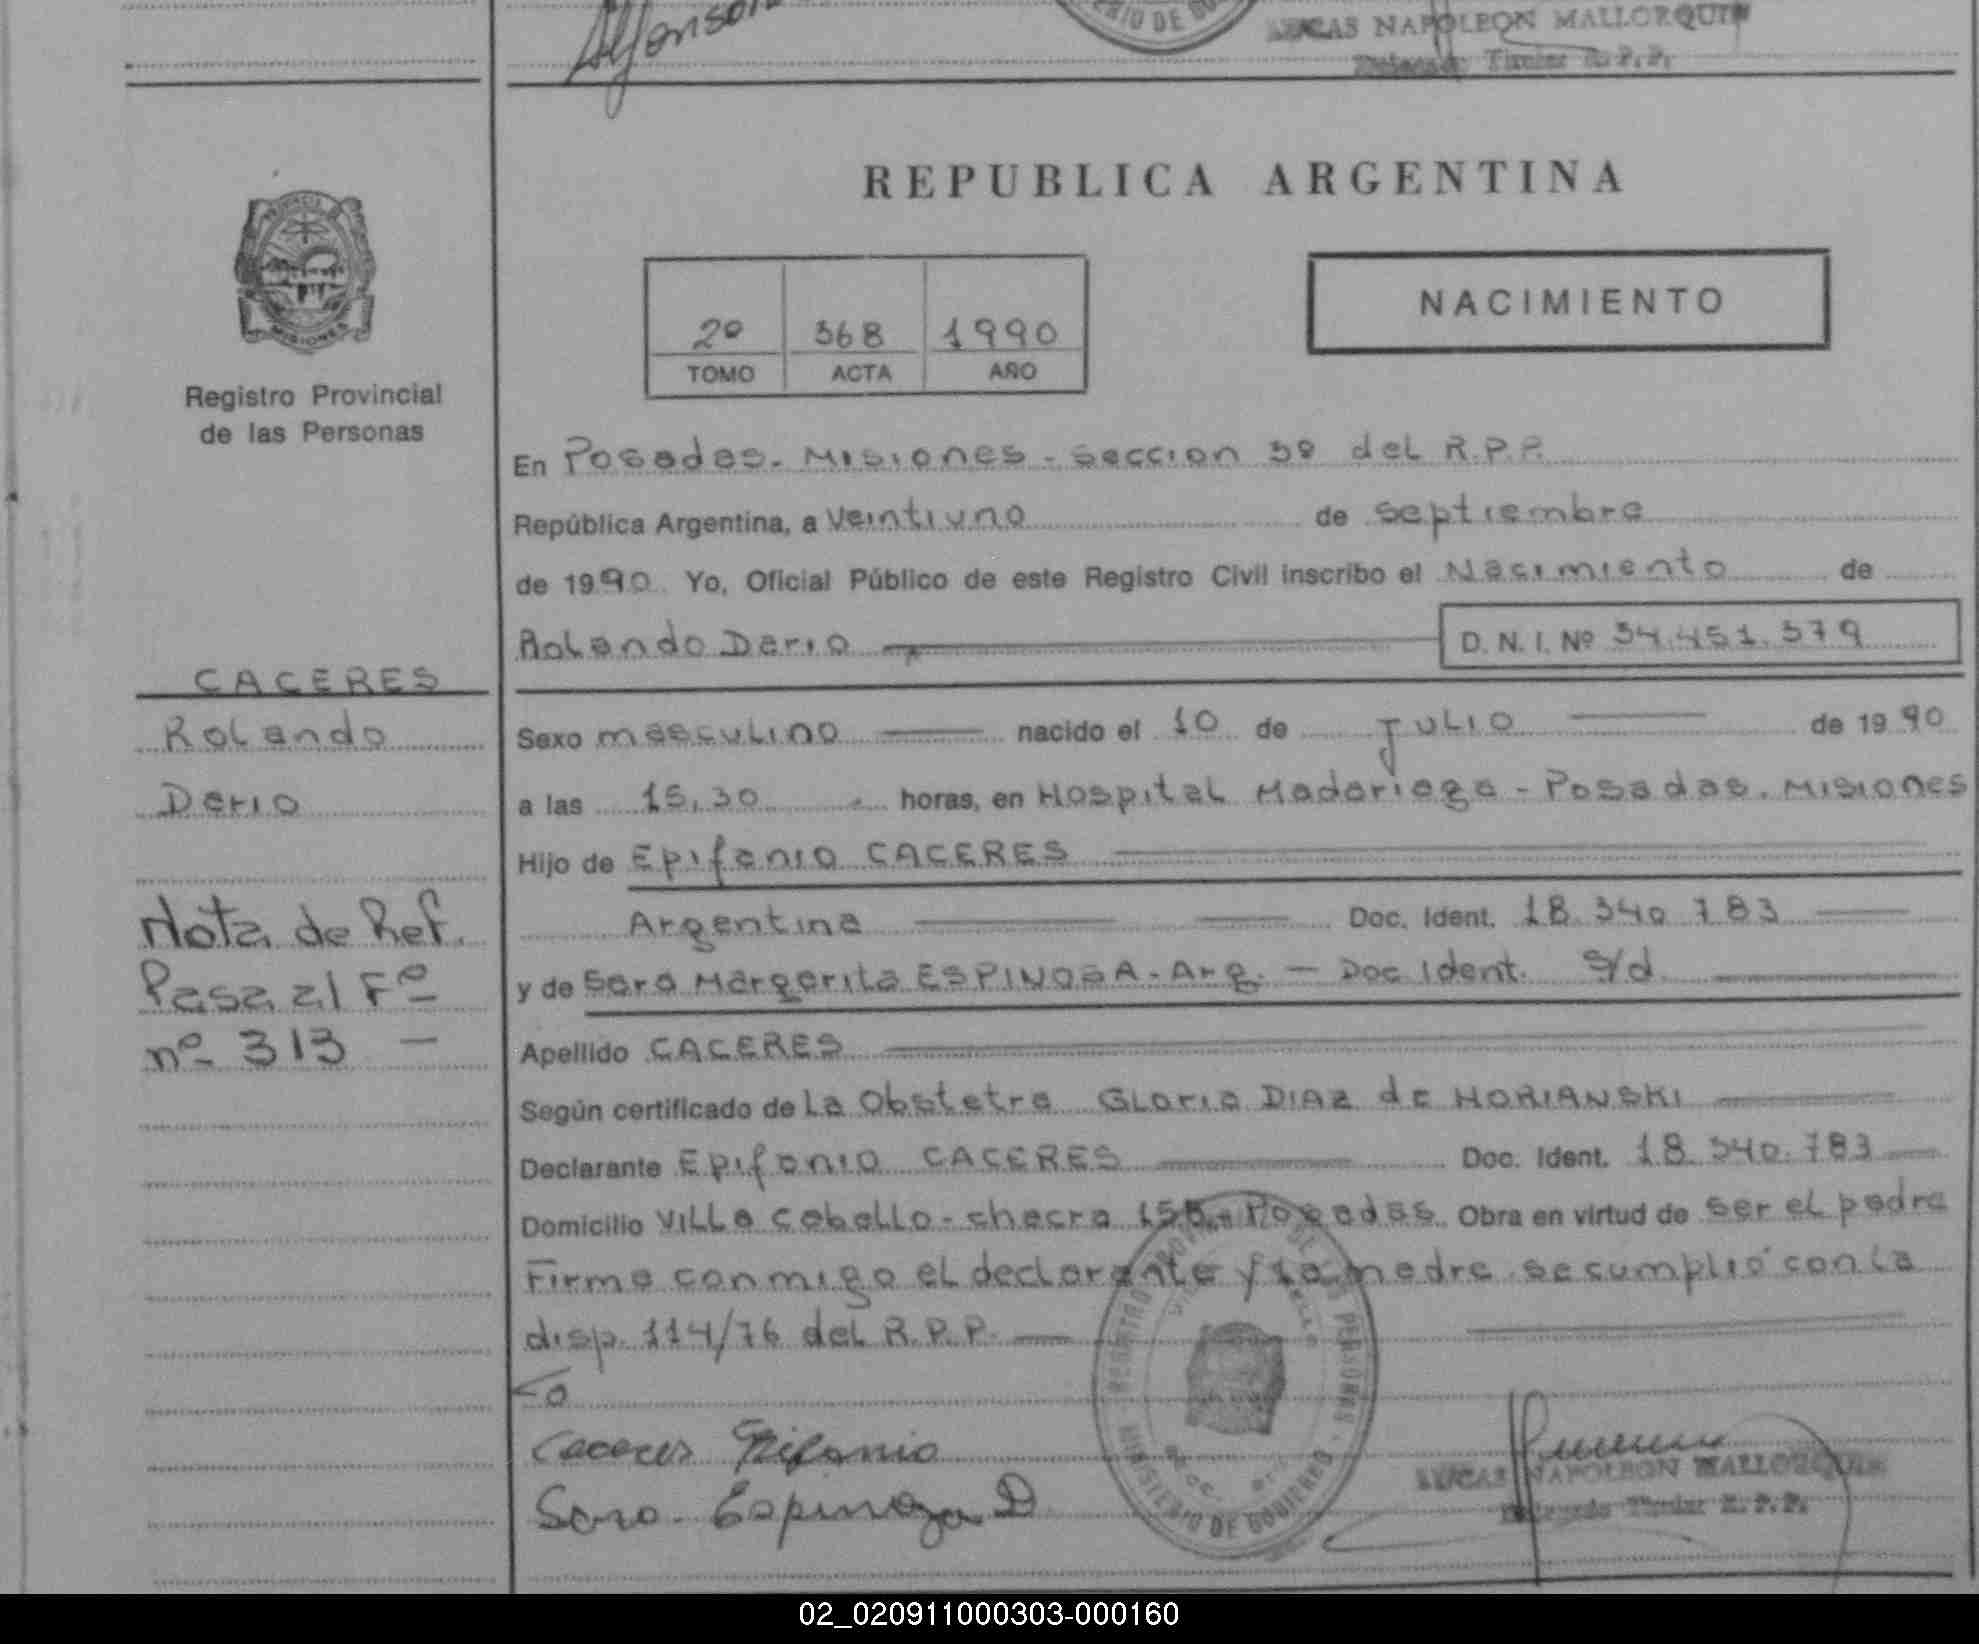 Alfonso
LUCAS NAPOLEON MALLORQUIN
Titular R.P.P.
PROVINCIA
MISIONES
Registro Provincial
de las Personas
REPUBLICA ARGENTINA
2º 368 1990
TOMO ACTA AÑO
NACIMIENTO
En Posadas. Misiones - Seccion 3º del R.P.P.
República Argentina, a Veintiuno de septiembre
de 1990. Yo, Oficial Público de este Registro Civil inscribo el Nacimiento de
Rolando Dario D. N. I. Nº 34.451.379
CACERES
Rolando
Dario
Nota de Ref.
Pasa al Fº
nº 313 -
Sexo masculino nacido el 10 de julio de 1990
a las 15,30 horas, en Hospital Madariaga - Posadas. Misiones
Hijo de Epifanio CACERES
Argentina Doc. Ident. 18.340.783
y de Sara Margarita ESPINOSA - Arg. - Doc Ident. S/d
Apellido CACERES
Según certificado de La Obstetra Gloria DIAZ de HORIANSKI
Declarante Epifanio CACERES Doc. Ident. 18.340.783
Domicilio Villa cabello - chacra 155 - Posadas Obra en virtud de ser el padre
Firma conmigo el declarante y la madre se cumplió con la
disp. 114/76 del R.P.P.
Caceres Epifanio
Sara Espinoza D
REGISTRO PROVINCIAL DE LAS PERSONAS
MINISTERIO DE GOBIERNO
LUCAS NAPOLEON MALLORQUIN
Delegado Titular R.P.P.
02_020911000303-000160